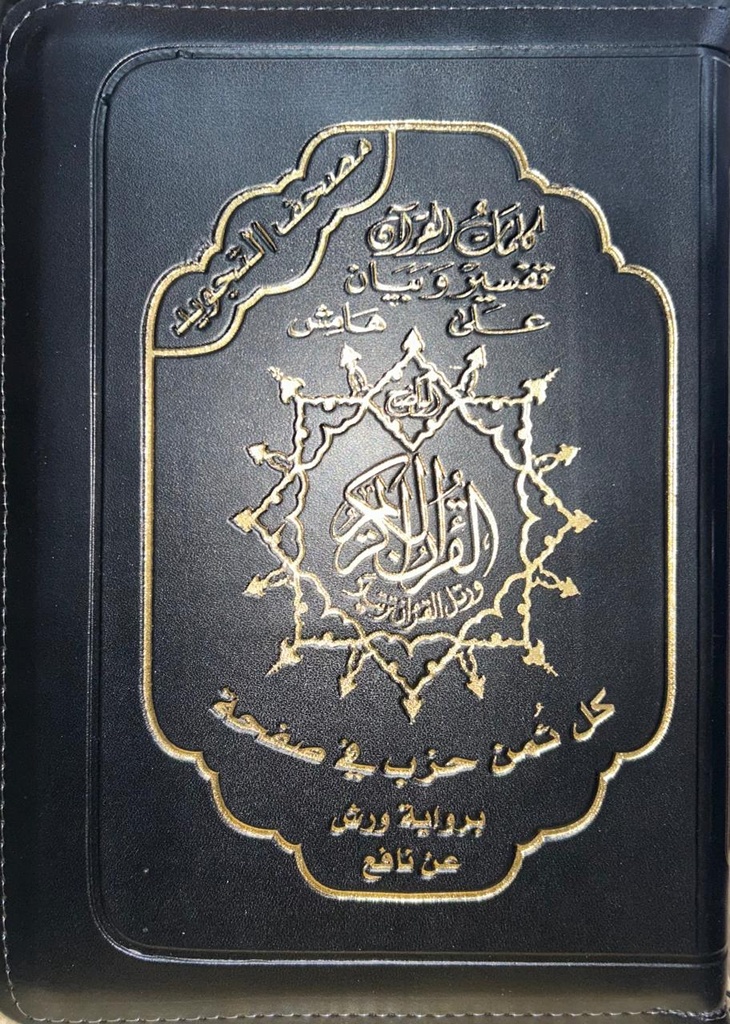 مصحف التجويد
كلمات القرآن
تفسير وبيان
على هامش
القرآن الكريم
ورتل القرآن ترتيلا
كل ثُمن حزب في صفحة
برواية ورش
عن نافع